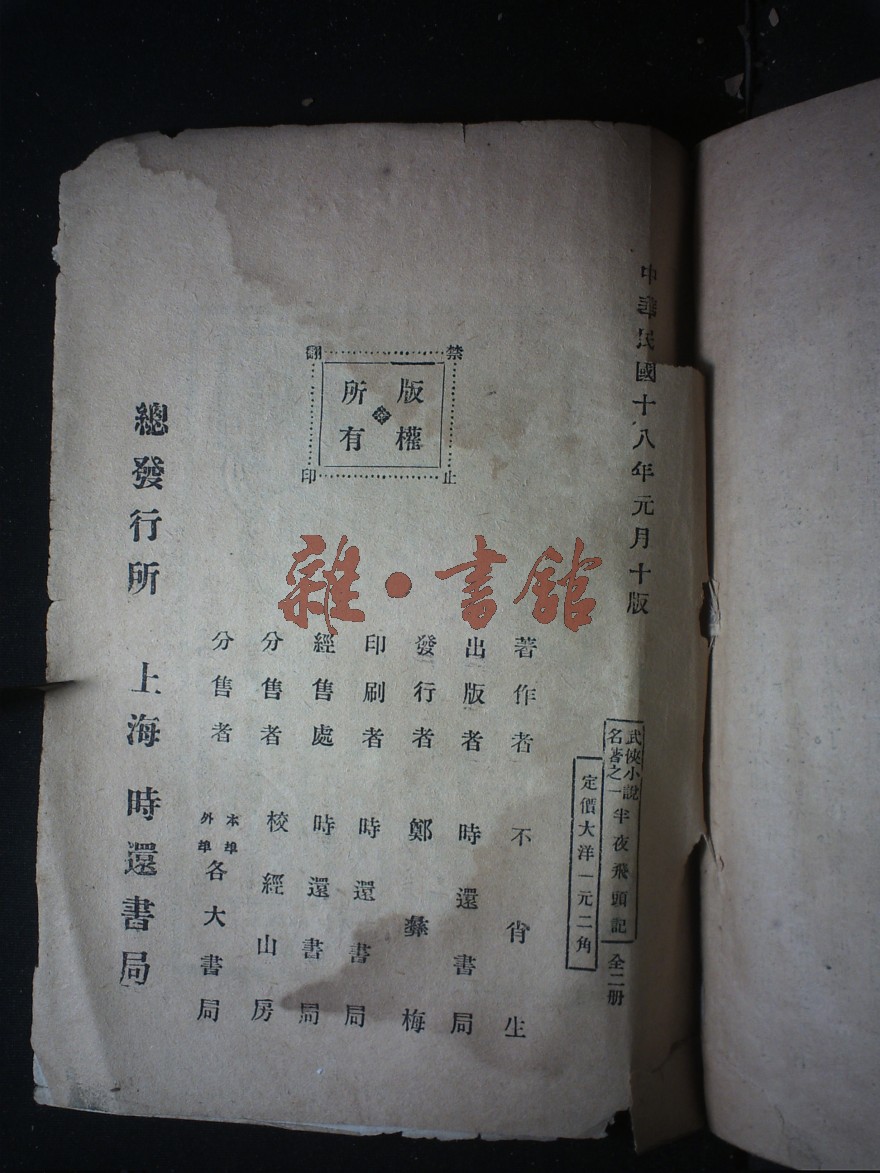 中華民國十八年元月十版
武俠小說名著之一
半夜飛頭記
全二册
定價大洋一元二角
著作者 不肖生
出版者 時還書局
發行者 鄭彝梅
印刷者 時還書局
經售處 時還書局
分售者 校經山房
分售者 本埠外埠各大書局
禁止翻印
版權所有
總發行所 上海時還書局
雜·書館